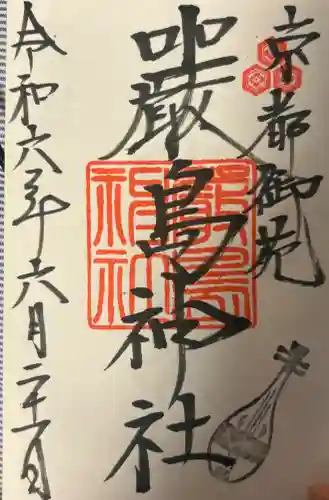 京都御苑
嚴島神社
嚴島神社
令和六年六月二十一日